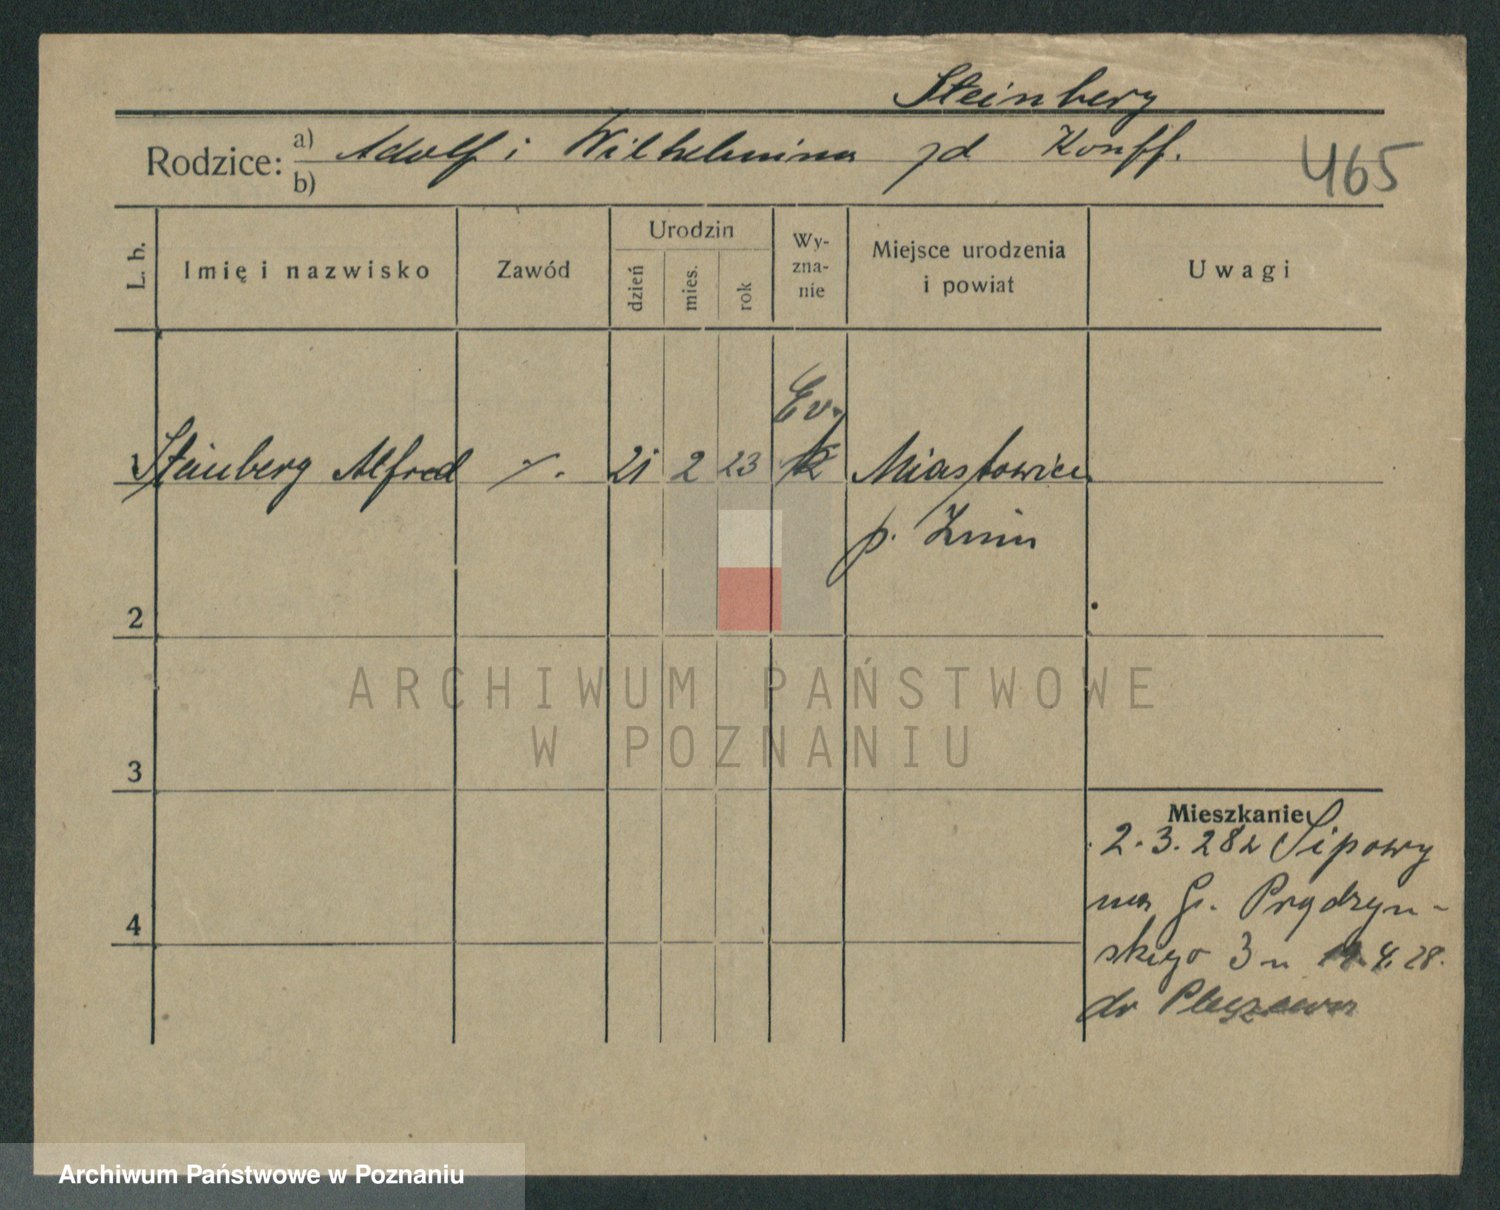 Steinberg
Rodzice: a) Adolf i Wilhelmina zd Konff.
b)
465
L. b.
Imię i nazwisko
Zawód
Urodzin
dzień
mies.
rok
Wy-
zna-
nie
Miejsce urodzenia
i powiat
Uwagi
Ev.
1 Steinberg Alfred ./. 21 2 23 k Miastowice
p. Żnin
2
3
4
Mieszkanie
2.3.28 z Lipowy
na G. Prądzyn-
skiego 3 4.28.
do Pleszewa
ARCHIWUM PAŃSTWOWE
W POZNANIU
Archiwum Państwowe w Poznaniu